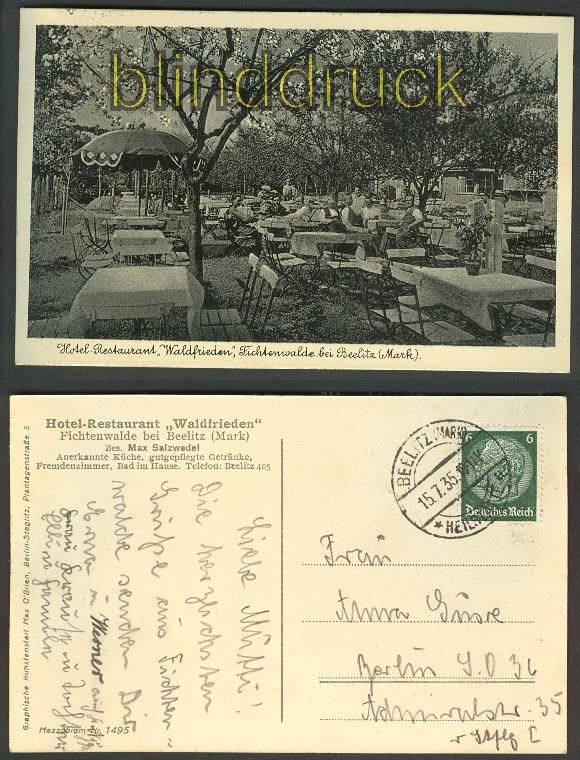 blinddruck
Hotel-Restaurant „Waldfrieden", Fichtenwalde bei Beelitz (Mark).
Hotel-Restaurant „Waldfrieden"
Fichtenwalde bei Beelitz (Mark)
Bes. Max Salzwedel
Anerkannte Küche, gutgepflegte Getränke,
Fremdenzimmer, Bad im Hause. Telefon: Beelitz 405
Graphische Kunstanstalt Max O'Brien, Berlin-Steglitz, Plantagenstraße 3
Mezzochrom Nr. 1495
Liebe Mutti!
Die herzlichsten
Grüße aus Fichten-
walde senden Dir
Erna u. Werner
BEELITZ (MARK)
15.7.35.
* HEIL
6 6
Deutsches Reich
Frau
Anna
Berlin S.O 36
Admiralstr. 35